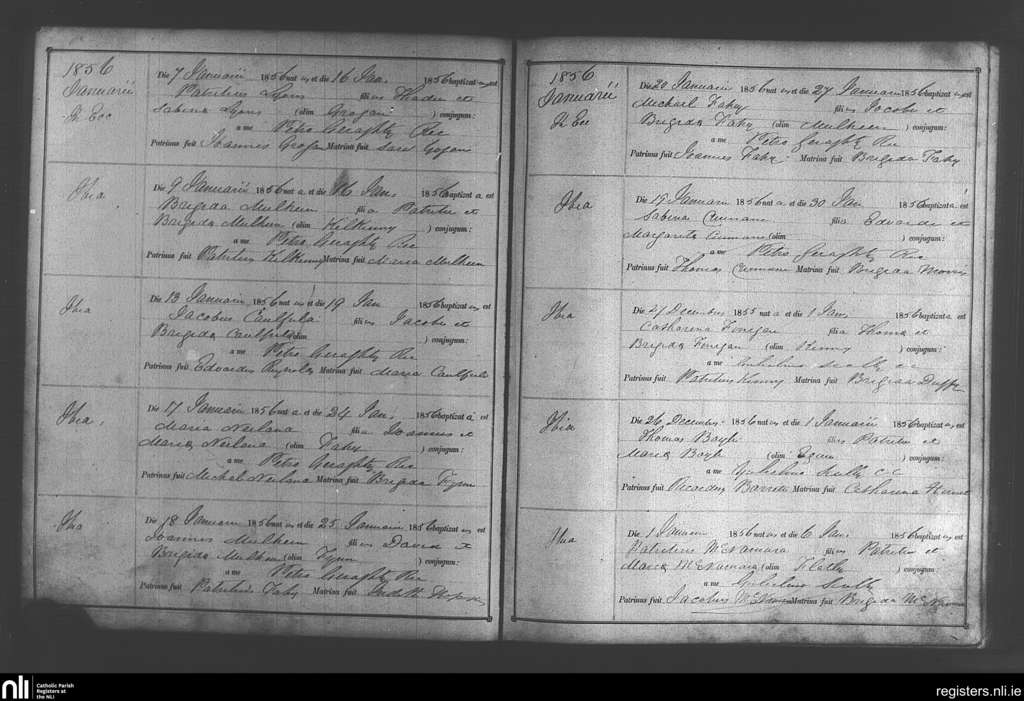 1856
Januarii
Die 7 Januarii 1856 nat us et die 16 Jan. 1856 baptizat us est
Patritius Lyons fili us Thadei et
Sabina Lyons (olim Grogan ) conjugum:
a me Petro Geraghty
Patrinus fuit Joannes Grogan Matrina fuit Sara Gogan
Ibia
Die 9 Januarii 1856 nat a et die 16 Jan. 1856 baptizat a est
Brigida Mulkeen fili a Patritii et
Brigida Mulkeen (olim Kilkenny ) conjugum:
a me Petro Geraghty
Patrinus fuit Patritius Kilkenny Matrina fuit Maria Mulkeen
Ibia
Die 13 Januarii 1856 nat us et die 19 Jan 1856 baptizat us est
Jacobus Caulfula fili us Jacobi et
Brigida Caulfula (olim ) conjugum:
a me Petro Geraghty
Patrinus fuit Edvardus Reynolds Matrina fuit Maria Caulfula
Ibia
Die 17 Januarii 1856 nat a et die 24 Jan. 1856 baptizat a est
Maria Neilana fili a Joannis et
Maria Neilana (olim Fahy ) conjugum:
a me Petro Geraghty
Patrinus fuit Michal Neilana Matrina fuit Brigida Fynn
Ibia
Die 18 Januarii 1856 nat us et die 25 Januarii 1856 baptizat us est
Joannes Mulkeen fili us David et
Brigida Mulkeen (olim Fynn ) conjugum:
a me Petro Geraghty
Patrinus fuit Patritius Fahy Matrina fuit
1856
Januarii
Die 20 Januarii 1856 nat us et die 27 Januarii 1856 baptizat us est
Michael Fahy fili us Jacobi et
Brigida Fahy (olim Mulkeen ) conjugum:
a me Petro Geraghty
Patrinus fuit Joannes Fahy Matrina fuit Brigida Fahy
Ibia
Die 19 Januarii 1856 nat a et die 30 Jan 1856 baptizat a est
Sabina Cunnane fili a Edvardi et
Margarita Cunnane (olim ) conjugum:
a me Petro Geraghty
Patrinus fuit Thomas Cunnane Matrina fuit Brigida Morris
Ibia
Die 27 Decembris 1855 nat a et die 1 Jan 1856 baptizat a est
Catharina Finegan fili a Thoma et
Brigida Finegan (olim Kenny ) conjugum:
a me Scully c c
Patrinus fuit Patritius Kenny Matrina fuit Brigida Duffy
Ibia
Die 26 Decembris 1856 nat us et die 1 Januarii 1856 baptizat us est
Thomas Boyle fili us Patritii et
Maria Boyle (olim Egan ) conjugum:
a me Gulielmo Scully C C
Patrinus fuit Ricardus Barrett Matrina fuit Catharina
Ibia
Die 1 Januarii 1856 nat us et die 6 Jan. 1856 baptizat us est
Patritius McNamara fili us Patritii et
Maria McNamara (olim Flatly ) conjugum:
a me Gulielmo Scully
Patrinus fuit Jacobus Matrina fuit Brigida McNamara
nli
Catholic Parish
Registers at
the NLI
registers.nli.ie